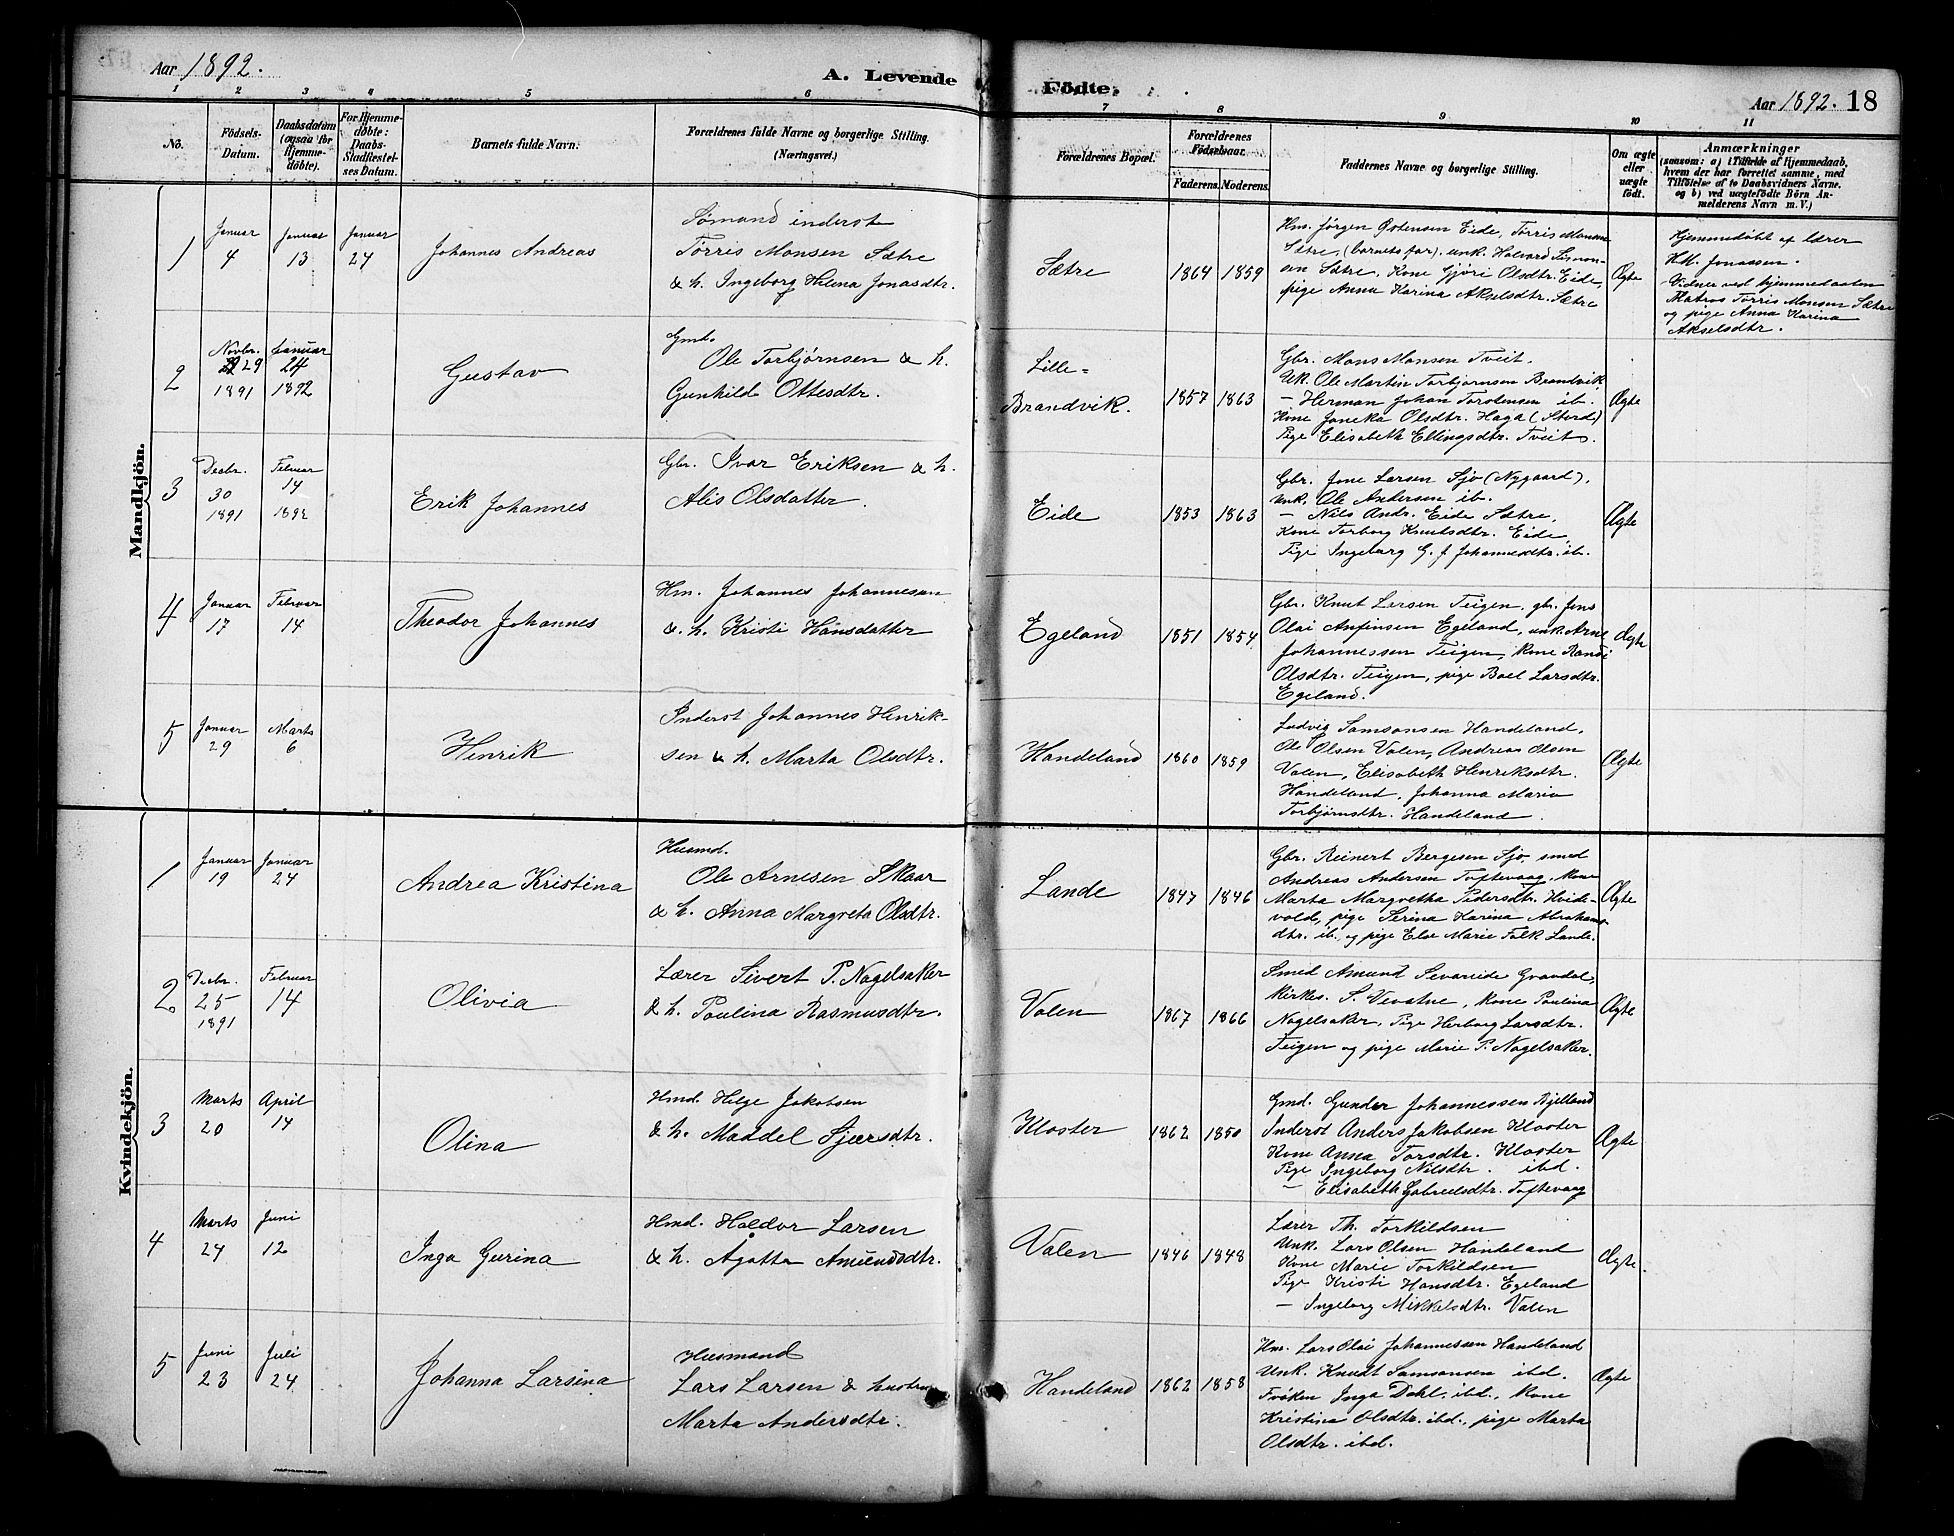 Aar 1892.
A. Levende Födte.
Aar 1892. 18
1 2 3 4 5 6 7 8 9 10 11
No.
Födsels-
Datum.
Daabsdatum
(ogsaa for
Hjemme-
döbte).
For Hjemme-
döbte:
Daabs-
Stadfæstel-
ses Datum.
Barnets fulde Navn.
Forældrenes fulde Navne og borgerlige Stilling.
(Næringsvei.)
Forældrenes Bopæl.
Forældrenes
Födselsaar.
Faderens. Moderens.
Faddernes Navne og borgerlige Stilling.
Om ægte
eller
uægte
födt.
Anmærkninger
(saasom: a) i Tilfælde af Hjemmedaab,
hvem der har forrettet samme, med
Tilföielse af to Daabsvidners Navne.
og b) ved uægtefödte Börn An-
melderens Navn m. V.)
Mandkjön.
1
Januar
4
Januar
13
Januar
24
Johannes Andreas
Sømand inderst
Tørris Monsen Sætre
& h. Ingeborg Helena Jonasdtr.
Sætre
1864 1859
Hm. Jørgen Østensen Eide, Tørris Monsen
Sætre, (barnets far), unk. Halvard Simon-
sen Sætre, Kone Gjøri Olsdtr. Eide,
pige Anna Karina Akselsdtr. Sætre
Ægte
Hjemmedøbt af lærer
H.K. Jonassen.
Vidner ved hjemmedaaben
Matros Tørris Monsen Sætre
og pige Anna Karina
Akselsdtr.
2
Novbr.
29
1891
Januar
24
1892
Gustav
Gmd.
Ole Torbjørnsen & h.
Gunhilde Ottesdtr.
Lille-
Brandvik.
1857 1863
Gbr. Mons Monsen Tveit.
Uk. Ole Martin Torbjørnsen Brandvik
— Herman Johan Torstensen ib.
Kone Joneka Olsdtr. Haga (Stord)
Pige Elisabeth Ellingsdtr. Tveit.
Ægte
3
Decbr.
30
1891
Februar
14
1892
Erik Johannes
Gbr. Ivar Eriksen & h.
Alis Olsdatter.
Eide
1853 1863
Gbr. Jone Larsen Sjo (Nygaard),
unk. Ole Andersen ib.
— Nils Andr. Eide Sætre,
Kone Torborg Knutsdtr. Eide,
Pige Ingeborg G. J. Johannesdtr. ib.
Ægte
4
Januar
17
Februar
14
Theodor Johannes
Hm. Johannes Johannessen
& h. Kristi Hansdatter
Egeland
1851 1854
Gbr. Knut Larsen Teigen, gbr. Jens
Olai Anfinsen Egeland, unk. Arne
Johannessen Teigen, Kone Randi
Olsdtr. Teigen, pige Boel Larsdtr.
Egeland.
Ægte
5
Januar
29
Marts
6
Henrik
Inderst Johannes Henrik-
sen & h. Marta Olsdtr.
Handeland
1860 1859
Ludvig Samsonsen Handeland.
Ole Olsen Valen, Andreas Olsen
Valen, Elisabeth Henriksdtr.
Handeland, Johanna Maria
Torbjørnsdtr. Handeland.
Ægte
Kvindekjön.
1
Januar
19
Januar
24
Andrea Kristina
Husmd.
Ole Arnesen Skaar
& h. Anna Margreta Olsdtr.
Lande
1847 1846
Gbr. Reinert Bergesen Sjo, smed
Andreas Andersen Toftevaag, Kone
Marta Margretha Pedersdtr. Hvide-
vold, pige Serina Karina Abrahams-
dtr. ib. og pige Else Marie Falk Lande.
Ægte
2
Decbr.
25
1891
Februar
14
Olivia
Lærer Sivert P. Nagelsaker
& h. Paulina Rasmusdtr.
Valen
1867 1866
Smed Amund Sevareide Gravdal,
Kirkes. S. Vevatne, Kone Paulina
Nagelsaker, Pige Herborg Larsdtr.
Teigen og pige Marie P. Nagelsaker.
Ægte
3
Marts
20
April
14
Olina
Hmd. Helge Jakobsen
& h. Maddel Sjursdtr.
Kloster
1862 1850
Gmd. Gunder Johannessen Kjelland
Inderst Anders Jakobsen Kloster
Kone Anna Torsdtr. Kloster
Pige Ingeborg Nilsdtr. ibd.
— Elisabeth Gabrielsdtr. Toftevaag
Ægte
4
Marts
24
Juni
12
Inga Gurina
Hmd. Haldor Larsen
& h. Ågatha Amundsdtr.
Valen
1846 1848
Lærer Th. Torkildsen
Unk. Lars Olsen Handeland
Kone Marie Torkildsen
Pige Kristi Hansdtr. Egeland
— Ingeborg Mikkelsdtr. Valen
Ægte
5
Juni
23
Juli
24
Johanna Larsina
Husmand
Lars Larsen & hustru
Marta Andersdtr.
Handeland
1862 1858
Hm. Lars Olai Johannessen Handeland
Unk. Knudt Samsonsen ibd.
Frøken Inga Dahl, ibd., Kone
Kristina Olsdtr. ibd., pige Marta
Olsdtr. ibd.
Ægte